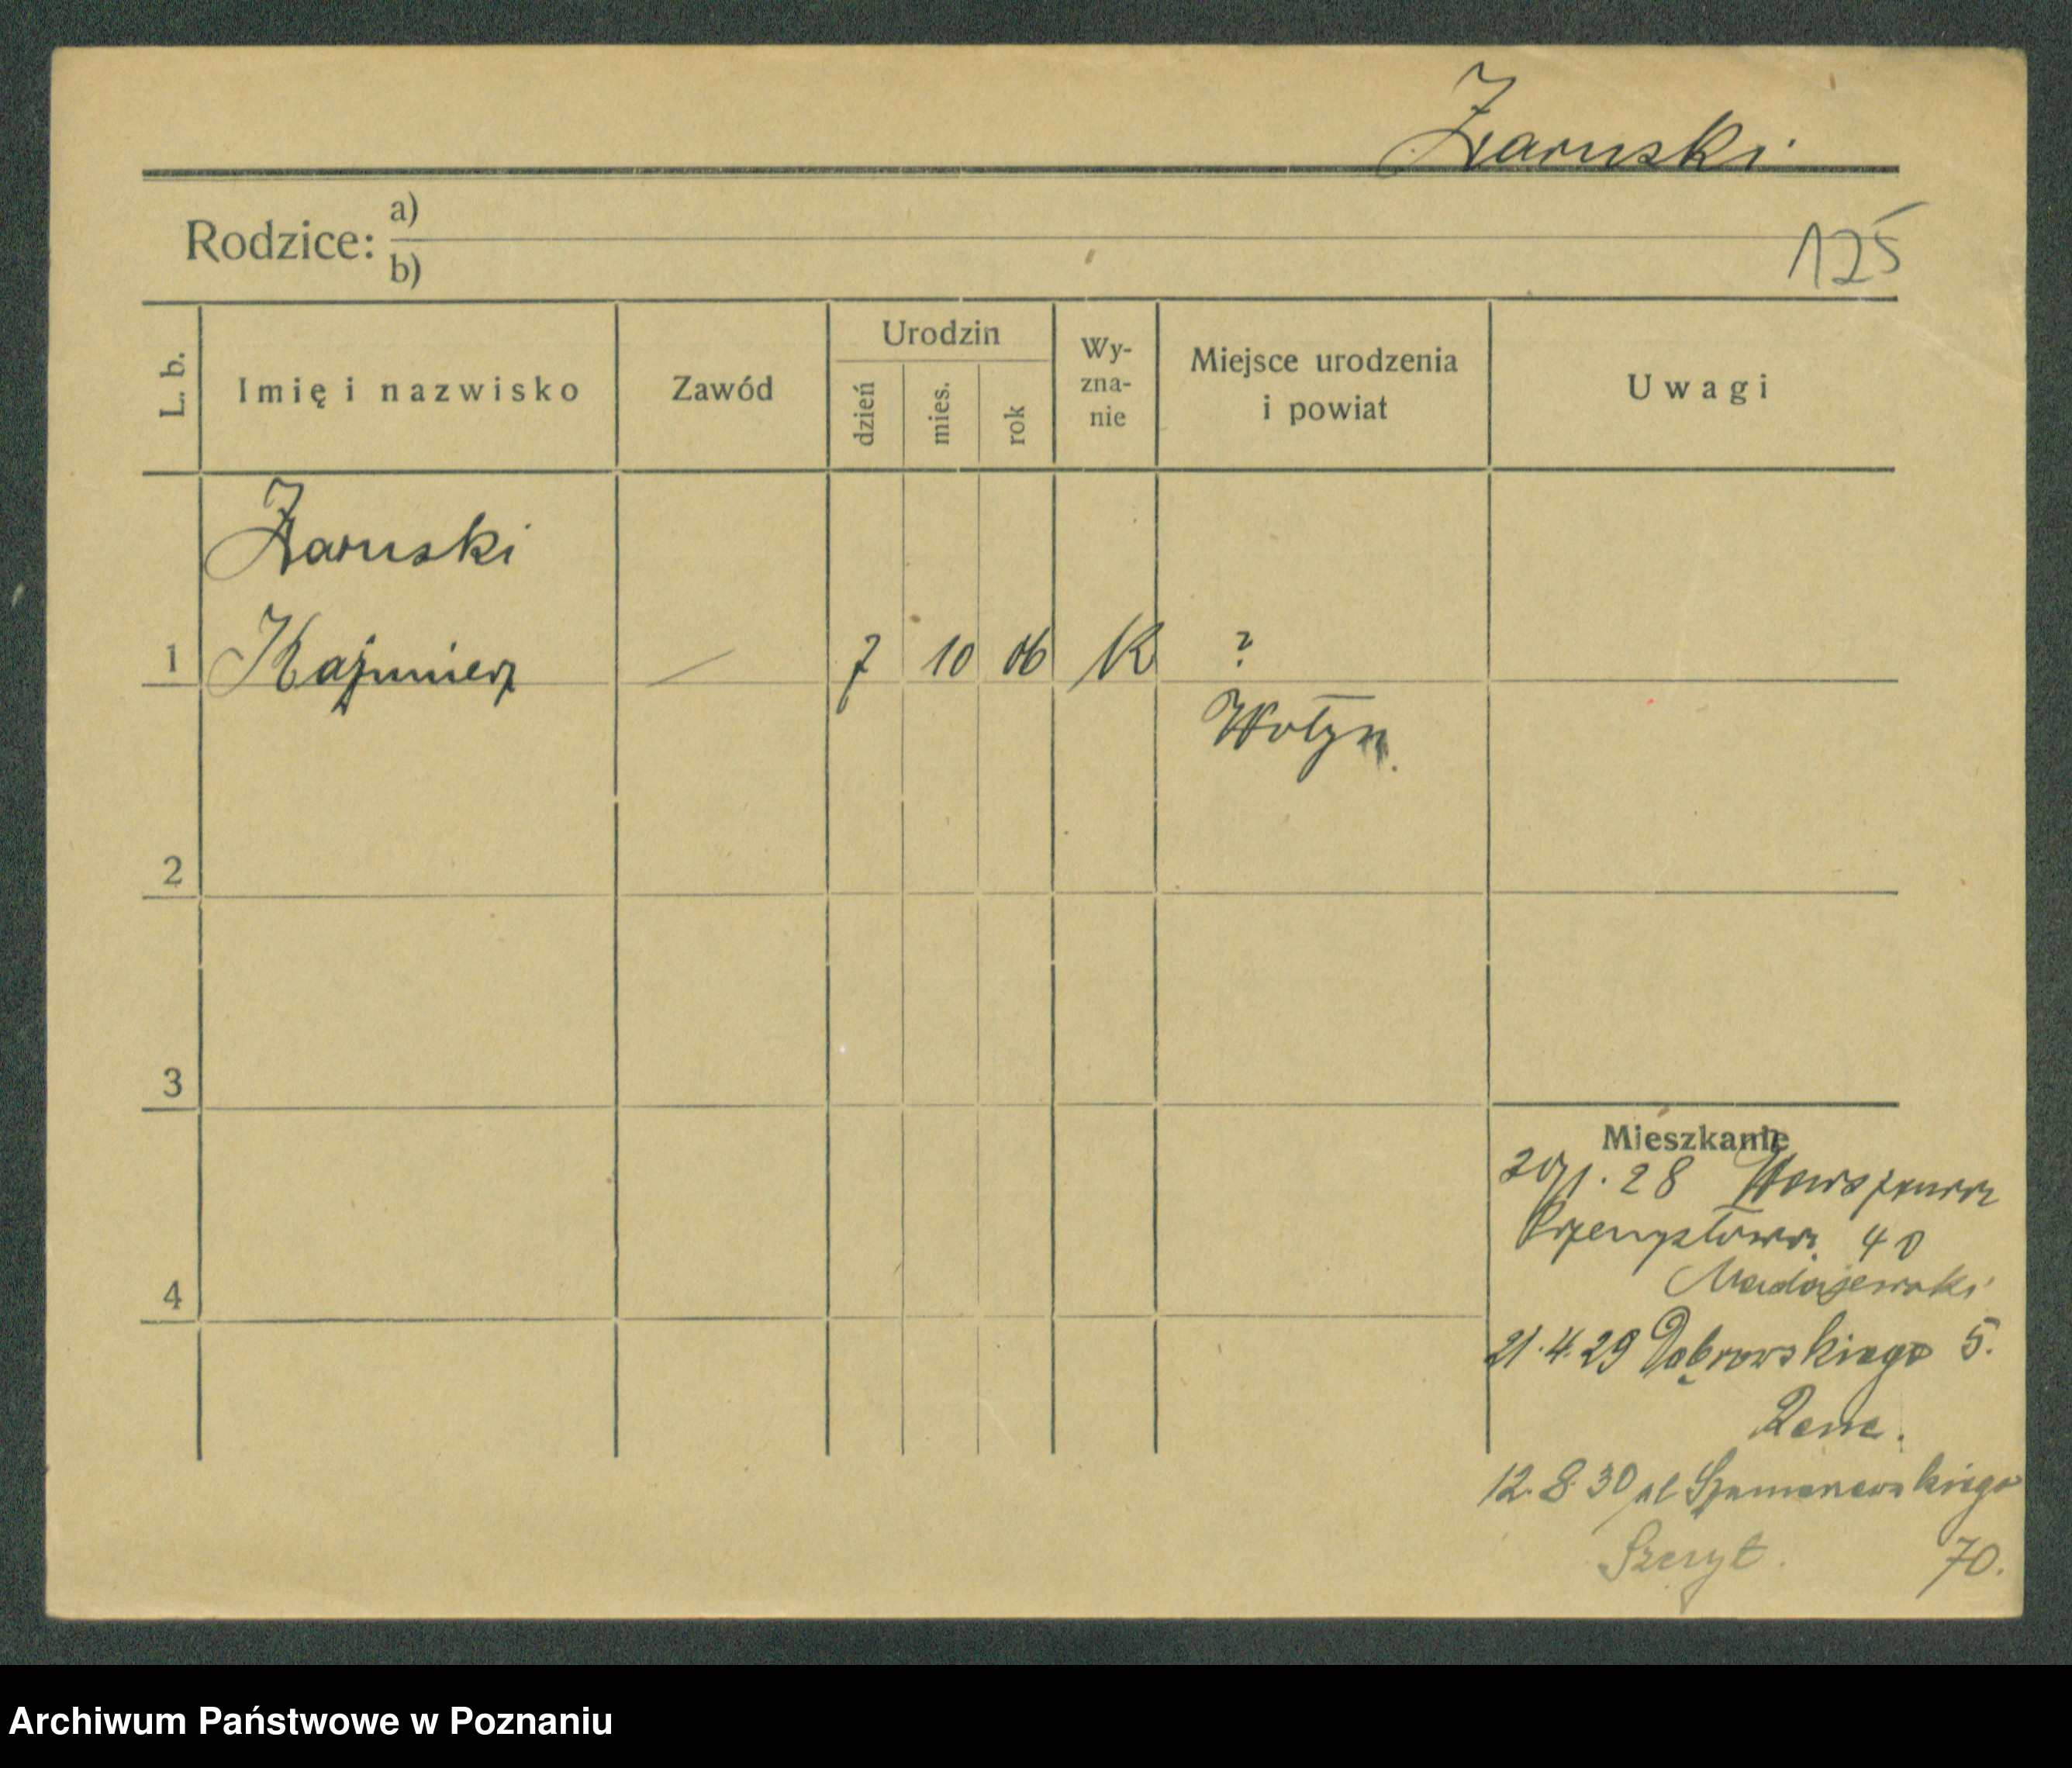 Zaruski
Rodzice: a)
b)
125
L. b.
Imię i nazwisko
Zawód
Urodzin
dzień
mies.
rok
Wy-
zna-
nie
Miejsce urodzenia
i powiat
Uwagi
Zaruski
1 Kazimierz — 7 10 06 K ?
Wołyń.
2
3
4
Mieszkanie
20/1. 28 Warszawa
Przemysłowa 40
Madajewski
21.4.29 Dąbrowskiego 5.
12.8.30 al Szamarzewskiego
70.
Archiwum Państwowe w Poznaniu